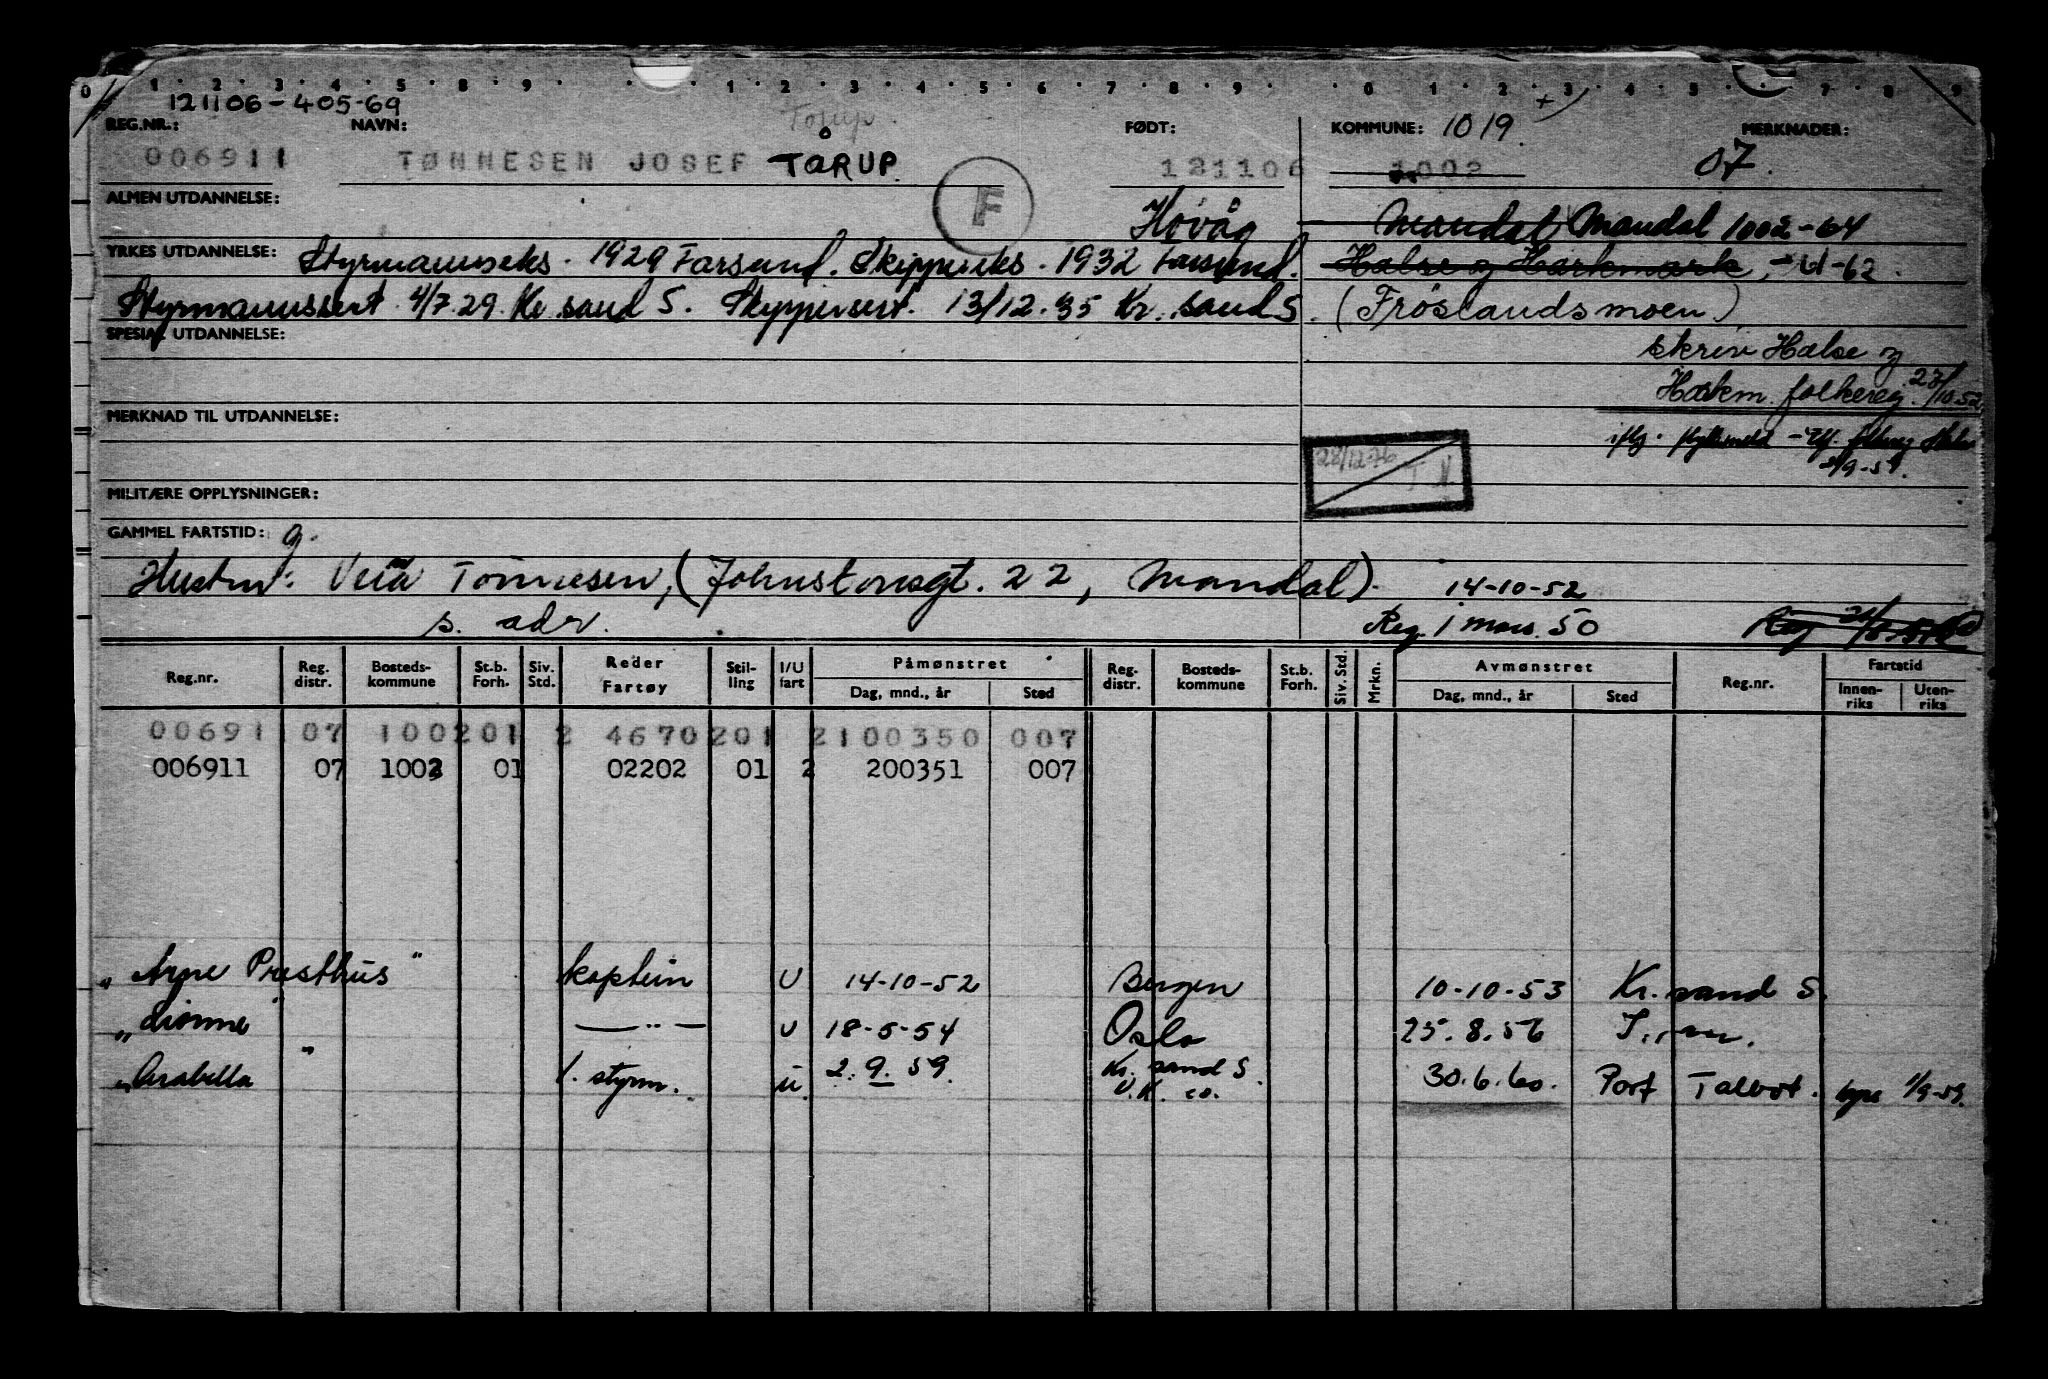 0 1 2 3 4 5 8 9 1 2 3 4 5 6 7 8 9 0 1 2 3 4 5 7 8 9
121106-405-69
Torup
REG.NR.: NAVN: FØDT: KOMMUNE: 1019 MERKNADER:
006911 TØNNESEN JOSEF TÅRUP 121106 1002 07.
F
ALMEN UTDANNELSE: Høvåg Mandal Mandal 1002-64
YRKES UTDANNELSE: Styrmannseks. 1929 Farsund. Skippereks. 1932 Farsund. Halse og Harkmark, -62.
Styrmannssert. 4/7.29. Kr.sand S. Skippersert. 13/12.35 Kr.sand S. (Frøslandsmoen)
SPESIAL UTDANNELSE: skriv Halse og
Harkm. folkereg. 27/10.52
MERKNAD TIL UTDANNELSE:
iflg. flyttemeld folkereg Halse
/9-51.
28/12-76
MILITÆRE OPPLYSNINGER:
GAMMEL FARTSTID: g.
Hustru: Tønnesen, (Johnstonsgt. 22, Mandal). 14-10-52
s. adr. Reg. i mars. 50 Reg
Reg.nr. Reg. distr. Bosteds-kommune St.b. Forh. Siv. Std. Reder Fartøy Stil-ling I/U fart Påmønstret Dag, mnd., år Sted Reg. distr. Bosteds-kommune St.b. Forh. Siv. Std. Mrkn. Avmønstret Dag, mnd., år Sted Reg.nr. Fartstid Innen-riks Uten-riks
006911 07 1002 01 2 4670 201 2 100350 007
006911 07 1002 01 02202 01 2 200351 007
"Arne Presthus" kaptein U 14-10-52 Bergen 10-10-53 Kr.sand S.
"Lionne" — " — U 18-5-54 Oslo 25.8.56
"Arabella" 1. styrm. U. 2.9.59. Kr.sand S. 30.6.60. Port Talbot. 1/9-59.